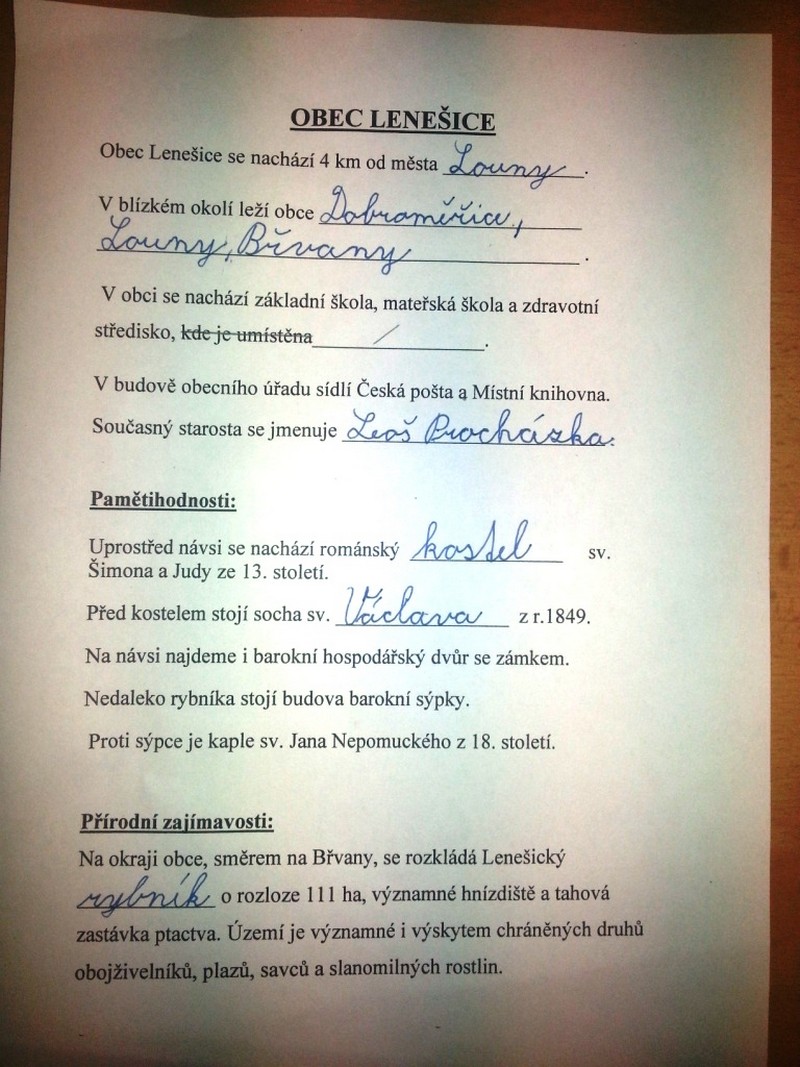 OBEC LENEŠICE
Obec Lenešice se nachází 4 km od města Louny.
V blízkém okolí leží obce Dobroměřice,
Louny, Břvany.
V obci se nachází základní škola, mateřská škola a zdravotní
středisko, kde je umístěna /.
V budově obecního úřadu sídlí Česká pošta a Místní knihovna.
Současný starosta se jmenuje Leoš Procházka.
Pamětihodnosti:
Uprostřed návsi se nachází románský kostel sv.
Šimona a Judy ze 13. století.
Před kostelem stojí socha sv. Václava z r.1849.
Na návsi najdeme i barokní hospodářský dvůr se zámkem.
Nedaleko rybníka stojí budova barokní sýpky.
Proti sýpce je kaple sv. Jana Nepomuckého z 18. století.
Přírodní zajímavosti:
Na okraji obce, směrem na Břvany, se rozkládá Lenešický
rybník o rozloze 111 ha, významné hnízdiště a tahová
zastávka ptactva. Území je významné i výskytem chráněných druhů
obojživelníků, plazů, savců a slanomilných rostlin.